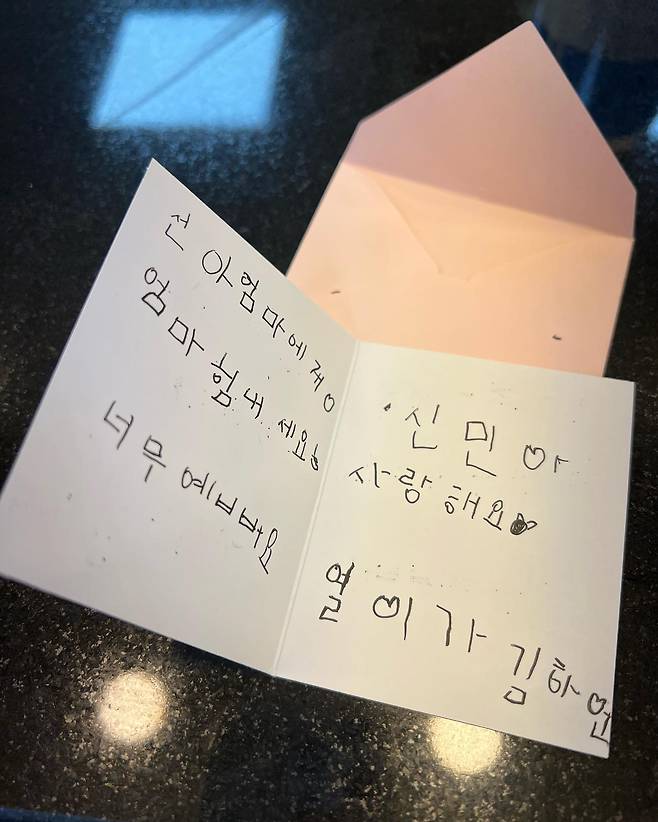 선 아엄마에게
엄마 힘내세요
너무 예뻐요
신민아
사랑해요
열이가 김하언